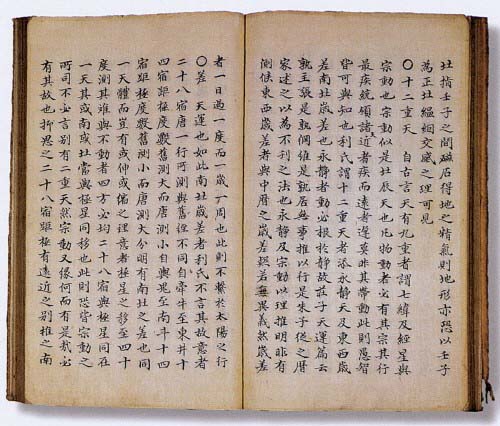 北指壬子之間磁石得地之精氣則地形亦恐以壬子
為正北緼絪交感之理可見
〇十二重天 自古言天有九重者謂七緯及經星與
宗動也宗動似是北辰天也凡物動者必有其宗其行
最疾統領諸近者疾而遠者遲莫非其帶動此則愚智
皆可與知也利氏謂十二重天者添永靜天及東西歲
差南北歲差也永靜者動必根於靜故莊子天運篇云
孰主張是孰綱維是孰居無事推以行是朱子從之曆
家述之以為不刊之法也永靜及宗動以理推明非有
測候東西歲差者與中曆之歲差若無異義然歲差
者一日過一度而一歲一周也此則不繫於太陽之行
〇差 天運也如此南北歲差者利氏不言其故意者
二十八宿唐一行所測與舊經不同自牽牛至東井十
四宿距極度數舊測大而唐測小自輿鬼至南斗十四
宿距極度數舊測小而唐測大分明有南北之差也同
一天體而豈有或伸或縮之理意者極星之移至四十
度測其離與不動者四方必均二十八宿與極星同在
一天其或南或北當與極星同移也此則恐皆宗動之
所司不必言別有二重天然宗動又緣何而有是哉必
有其故也抑思之二十八宿距極有遠近之別推之南